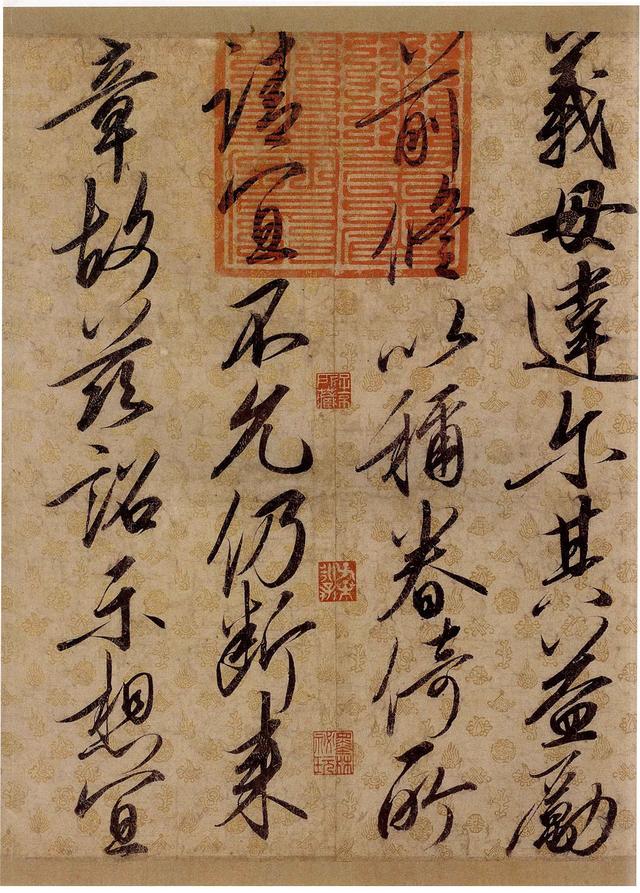 義毋違尔其益勵
前脩以稱眷倚所
請宜不允仍断来
章故茲詔示想宜